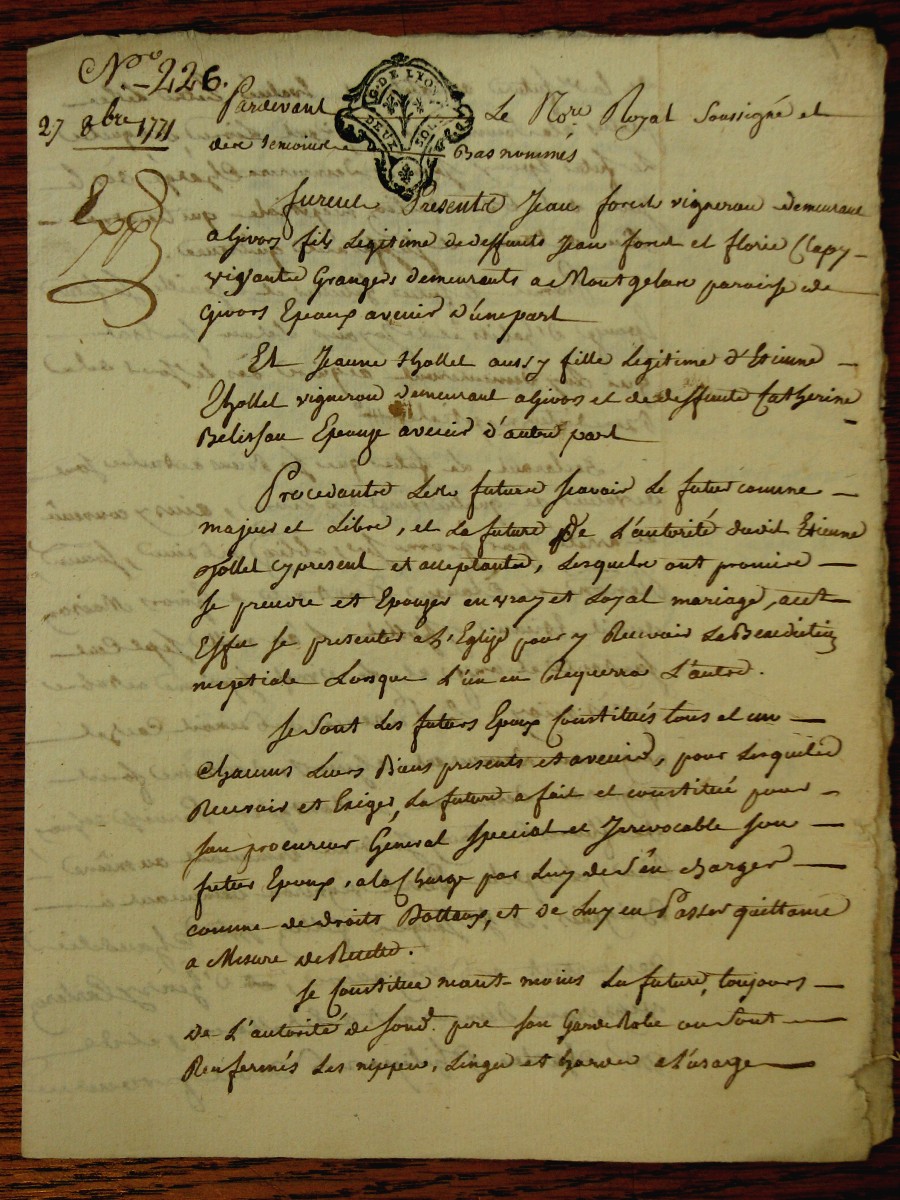 Nro. 226.
27 8bre 1771
Expp
G. DE LYON
DEUX SOLS
Pardevant Le Nore. Royal Soussigné et
des temoins Bas nommés
furent Presents Jean foret vigneron demeurant
a Givors fils Legitime de deffunts Jean foret et florie Clapy
vivants Grangers demeurants a Montgelas paroisse de
Givors Epoux avenir d'une part
Et Jeanne thollet aussy fille Legitime d'Etienne
thollet vigneron demeurant a Givors et de deffunte Catherine
Belissau Epouze avenir d'autre part
Procedants Lesds futurs scavoir Le futur comme
majeur et Libre, et La future de L'autorité dudit Etienne
thollet cy present et acceptants, Lesquels ont promis
se prendre et Epouzer en vray et Loyal mariage, a cet
Effet se presenter a L'Eglize pour y Recevoir La Benediction
nuptiale Lorsque L'un en Requerra L'autre.
Se Sont Les futurs Epoux Constitués tous et un
Chacuns Leurs Biens presents et avenir, pour Lesquels
Recevoir et Exiger, La future a fait et constitué pour
son procureur General Special et Irrevocable son
futur Epoux, a la Charge par Luy de s'en charger
comme de droits Dottaux, et de Luy en Passer quittance
a Mesure de Recette.
Se Constitue neant-moins La future, toujours
de L'autorité de sond. pere son Garderobe ou sont
Renfermés Les nippes, Linges et hardes a l'usage